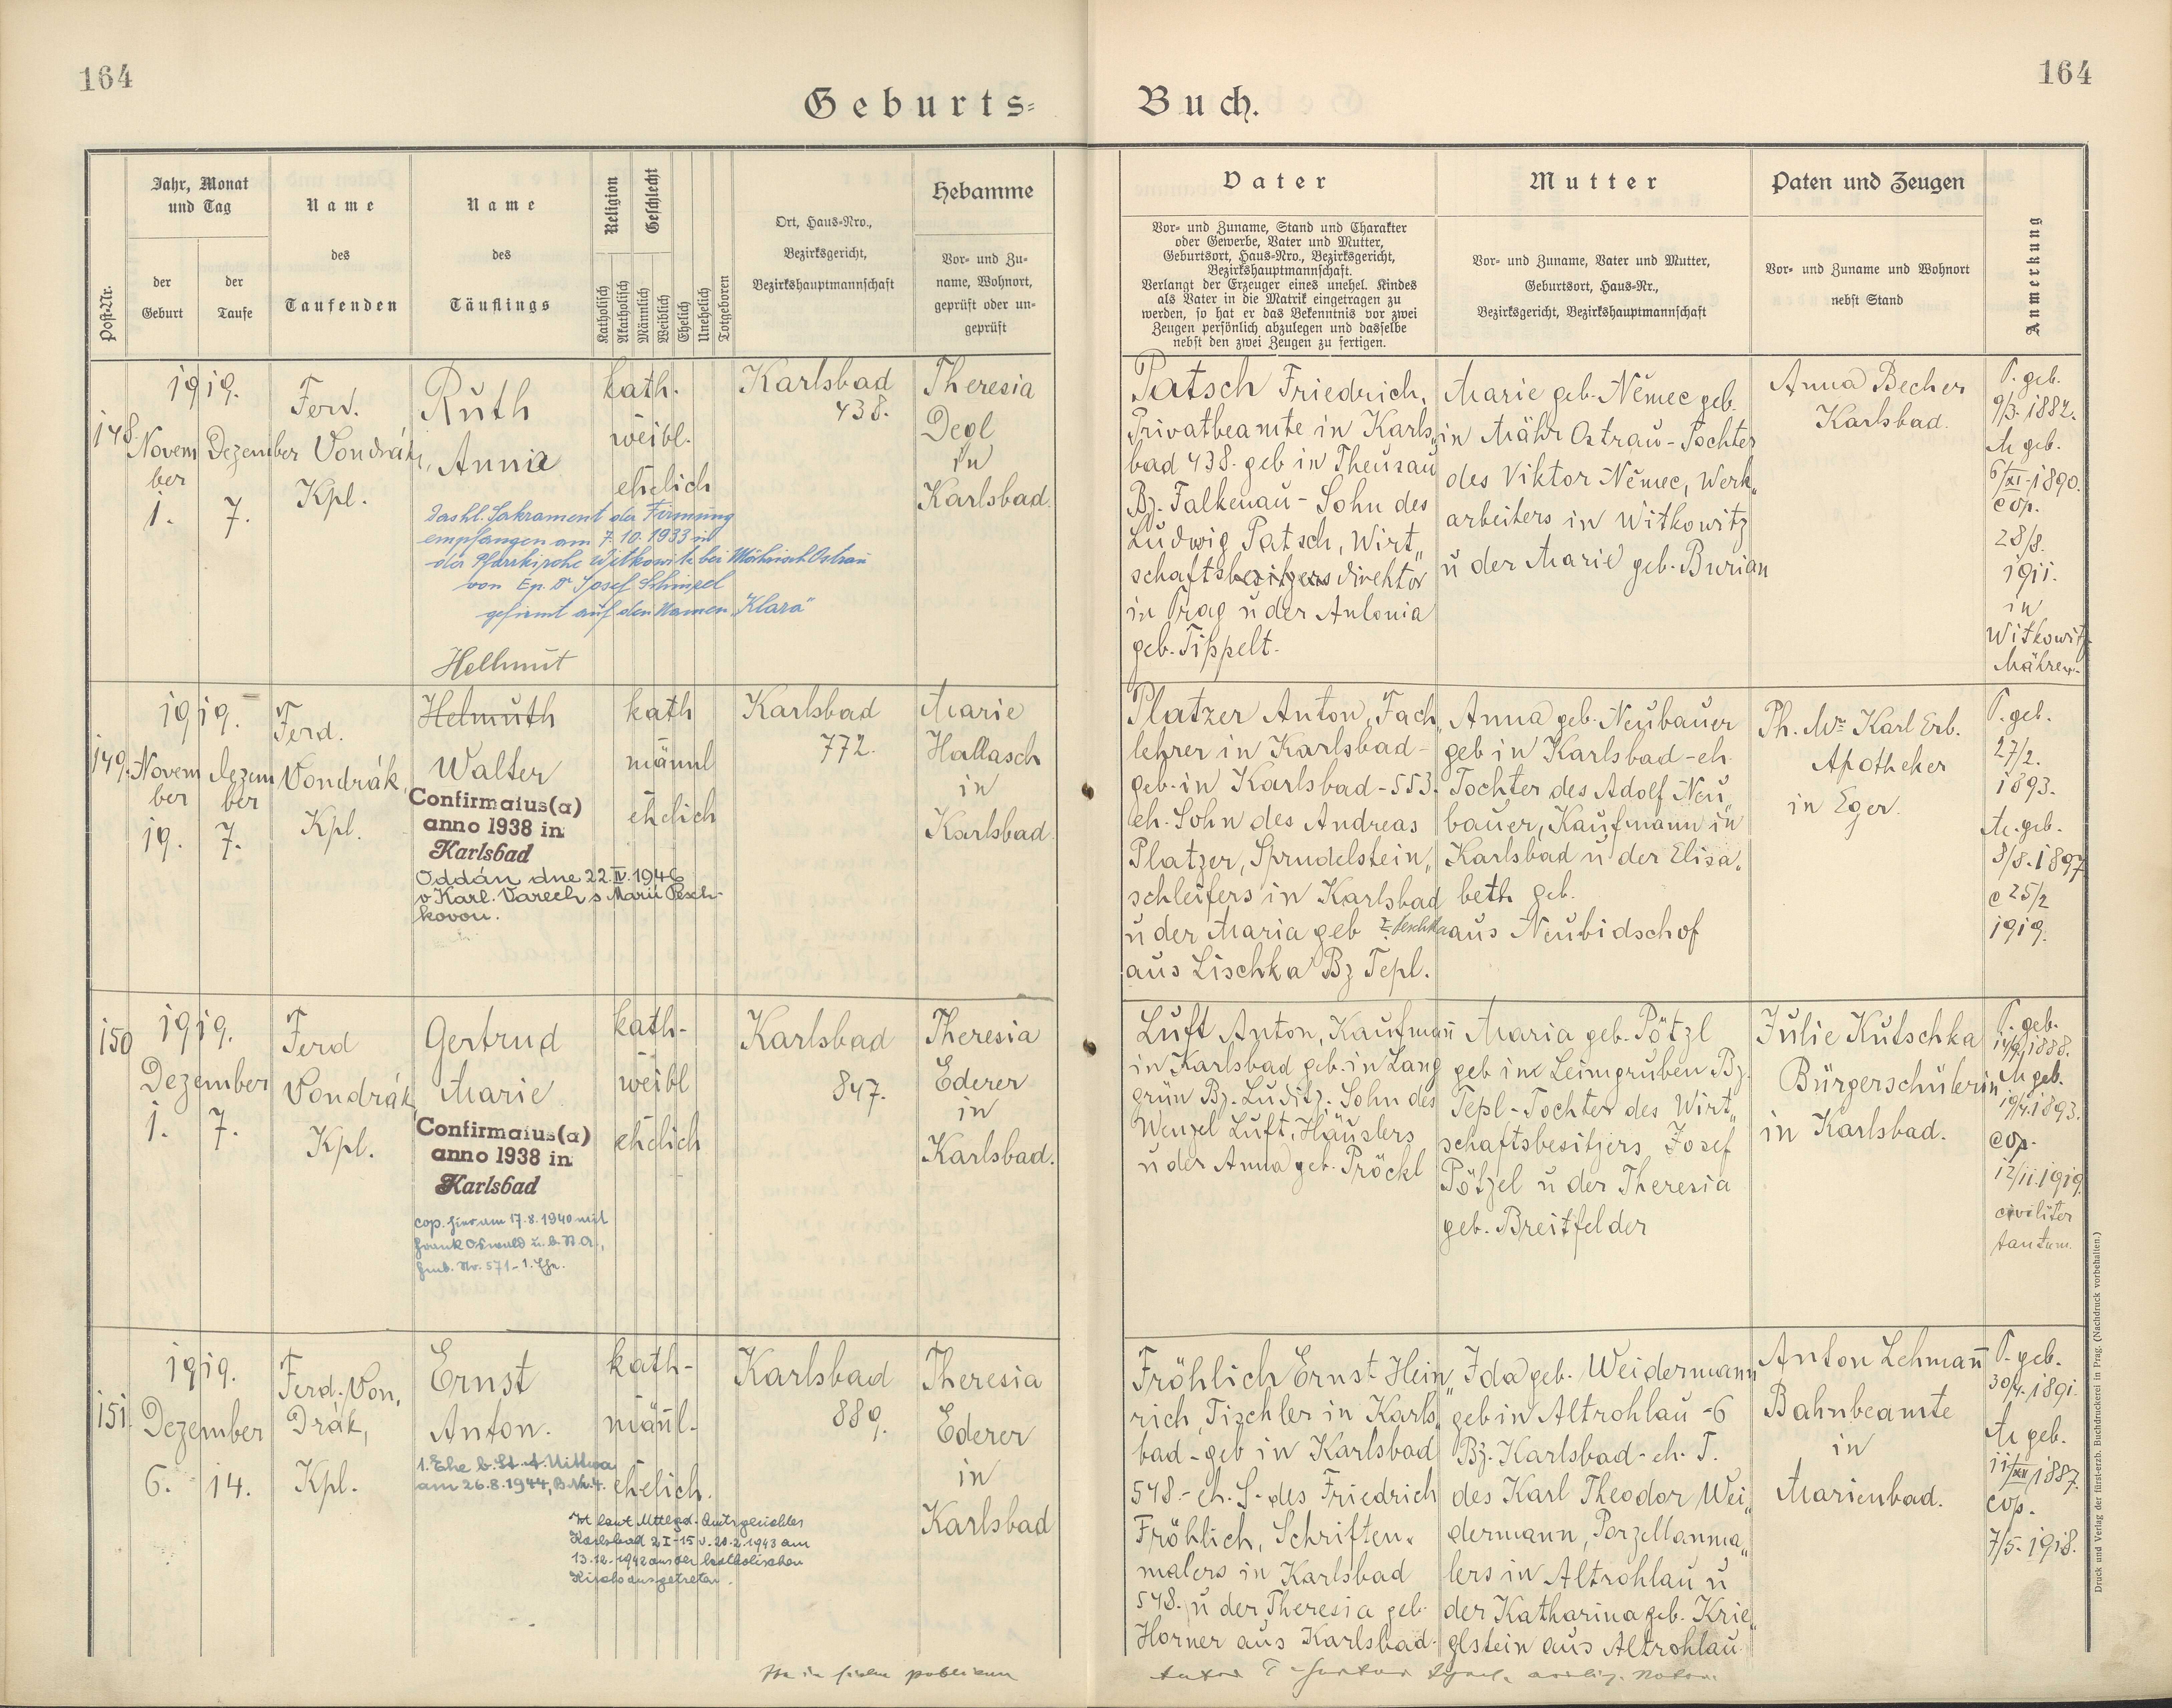 164
164
Geburts=
Buch.
Post-Nr.
Jahr, Monat
und Tag
der
Geburt
der
Taufe
Name
des
Taufenden
Name
des
Täuflings
Religion
Katholisch
Akatholisch
Geschlecht
Männlich
Weiblich
Ehelich
Unehelich
Totgeboren
Ort, Haus-Nro.,
Bezirksgericht,
Bezirkshauptmannschaft
Hebamme
Vor- und Zu-
name, Wohnort,
geprüft oder un-
geprüft
Vater
Vor- und Zuname, Stand und Charakter
oder Gewerbe, Vater und Mutter,
Geburtsort, Haus-Nro., Bezirksgericht,
Bezirkshauptmannschaft.
Verlangt der Erzeuger eines unehel. Kindes
als Vater in die Matrik eingetragen zu
werden, so hat er das Bekenntnis vor zwei
Zeugen persönlich abzulegen und dasselbe
nebst den zwei Zeugen zu fertigen.
Mutter
Vor- und Zuname, Vater und Mutter,
Geburtsort, Haus-Nr.,
Bezirksgericht, Bezirkshauptmannschaft
Paten und Zeugen
Vor- und Zuname und Wohnort
nebst Stand
Anmerkung
148.
1919.
Novem
ber
1.
Dezember
7.
Ferd.
Vondrák,
Kpl.
Ruth
Anna
Das hl. Sakrament der Firmung
empfangen am 7. 10. 1933 in
der Pfarrkirche Witkowitz bei Mährisch Ostrau
von Ep. Dr Josef Schinzel
gefirmt auf den Namen "Klara"
kath.
weibl.
ehelich
Karlsbad
438.
Theresia
Degl
in
Karlsbad.
Patsch Friedrich,
Privatbeamte in Karls„
bad 438. geb in Theusau
Bz. Falkenau - Sohn des
Ludwig Patsch, Wirt„
schaftsbesitzers direktor
in Prag u der Antonia
geb. Tippelt.
Marie geb. Němec geb.
in Mähr Ostrau - Tochter
des Viktor Němec, Werk„
arbeiters in Witkowitz
u der Marie geb. Burian
Anna Becher
Karlsbad.
P. geb.
9/3. 1882.
M geb.
6/XI. 1890.
cop.
28/8.
1911.
in
Witkowitz
Mähren.
149.
1919.
Novem
ber
19.
Dezem
ber
7.
Ferd.
Vondrák,
Kpl.
Hellmut
Helmuth
Walter
Confirmatus(a)
anno 1938 in
Karlsbad
Oddán dne 22.IV.1946
v Karl. Varech s Marií Pesch-
kovou.
kath
männl
ehelich
Karlsbad
772.
Marie
Hallasch
in
Karlsbad.
Platzer Anton, Fach„
lehrer in Karlsbad -
geb. in Karlsbad - 553.
eh. Sohn des Andreas
Platzer, Sprudelstein„
schleifers in Karlsbad
u der Maria geb
aus Lischka Bz Tepl.
Anna geb. Neubauer
geb in Karlsbad - eh.
Tochter des Adolf Neu„
bauer, Kaufmann in
Karlsbad u der Elisa„
beth geb.
aus Neubidschof
Ph. Mr. Karl Erb.
Apotheker
in Eger.
P. geb.
27/2.
1893.
M. geb.
3/8. 1897
c 25/2
1919.
150
1919.
Dezember
1.
7.
Ferd
Vondrák,
Kpl.
Gertrud
Marie
Confirmatus(a)
anno 1938 in
Karlsbad
cop. hier am 17.8.1940 mit
Frank Oswald
Nr. 571 - 1. Ehe.
kath.
weibl
ehelich
Karlsbad
847.
Theresia
Ederer
in
Karlsbad.
Luft Anton, Kaufmañ
in Karlsbad geb. in Lang
grün Bz. Luditz. Sohn des
Wenzel Luft, Häuslers
u der Anna geb. Pröckl
Maria geb. Pötzl
geb in Leimgruben Bz.
Tepl - Tochter des Wirt„
schaftsbesitzers Josef
Pötzel u der Theresia
geb. Breitfelder
Julie Kutschka
Bürgerschülerin
in Karlsbad.
P. geb.
14/9. 1888.
M geb.
19/4. 1893.
cop.
12/11. 1919.
civiliter
tantum.
151.
1919.
Dezember
6.
14.
Ferd. Von„
drák,
Kpl.
Ernst
Anton.
1. Ehe b. St. A. Mittwa
am 26.8.1944, B. Nr. 4.
Ist laut Mttlgd. Amtsgerichtes
Karlsbad 2 I - 15 v. 20.2.1943 am
13.12.1942 aus der katholischen
Kirche ausgetreten.
kath.
mäñl.
ehelich.
Karlsbad
889.
Theresia
Ederer
in
Karlsbad
Fröhlich Ernst Hein„
rich, Tischler in Karls„
bad - geb in Karlsbad
548. - eh. S. des Friedrich
Fröhlich, Schriften„
malers in Karlsbad
548. u der Theresia geb.
Horner aus Karlsbad.
Ida geb. Weidermann
geb in Altrohlau - 6
Bz. Karlsbad - eh. T.
des Karl Theodor Wei„
dermann, Porzellanma„
lers in Altrohlau u
der Katharina geb. Krie„
glstein aus Altrohlau
Anton Lehmañ
Bahnbeamte
in
Marienbad.
P. geb.
30/4. 1891.
M geb.
11/XII 1887.
cop.
7/5. 1918.
Druck und Verlag der fürst-erzb. Buchdruckerei in Prag. (Nachdruck vorbehalten.)